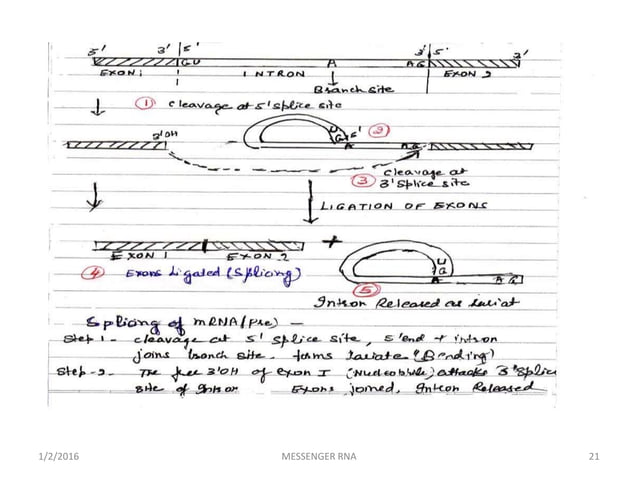 5' 3' 5' 3' 5' 3'
GU A AG
EXON 1 INTRON EXON 2
Branch site
1 Cleavage at 5' splice site
3'OH U G 5' 2
A AG
Cleavage at
3 3' splice site
LIGATION OF EXONS
EXON 1 EXON 2 + U G
A AG
4 Exons Ligated (Splicing) 5
Intron Released as lariat
Splicing of mRNA (Pre) —
Step 1 - cleavage at 5' splice site, 5'end of intron
joins branch site. forms lariate "(Bending)
Step -2- The free 3'OH of exon I (Nucleophile) attacks 3' Splice
site of Intron Exons joined, Intron Released
1/2/2016 MESSENGER RNA 21